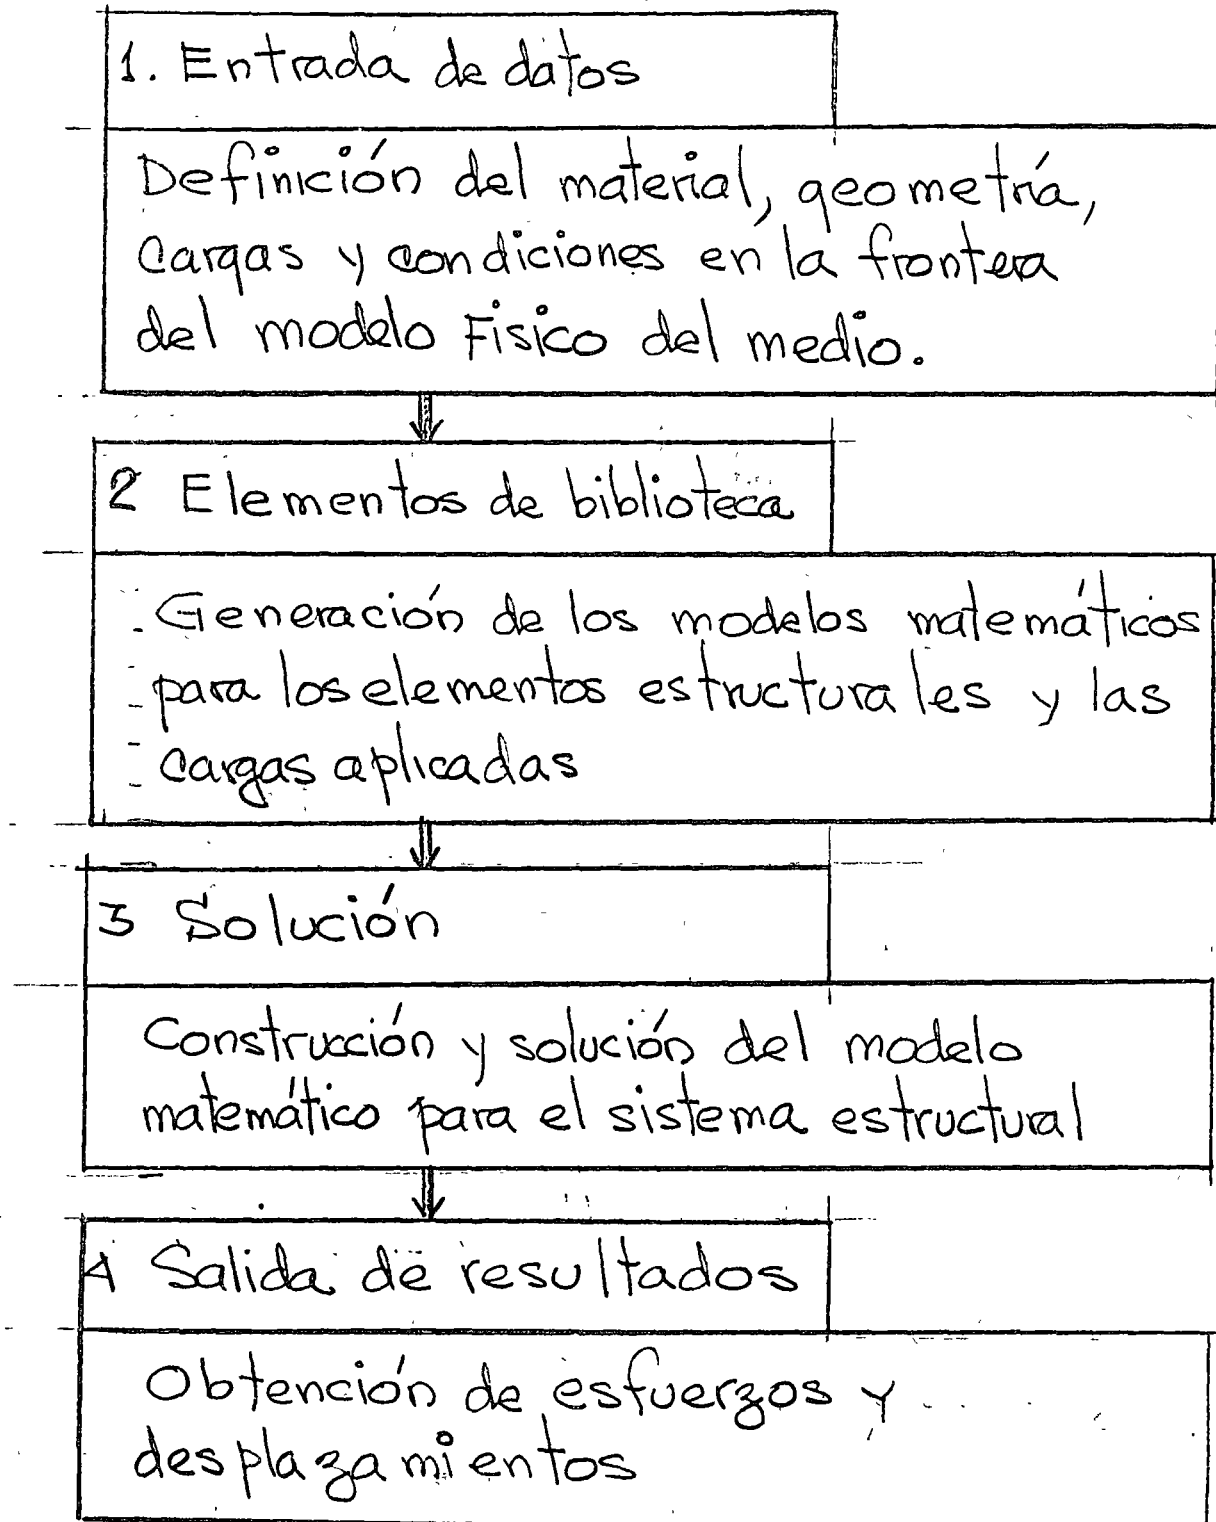 1. Entrada de datos
Definición del material, geometría,
cargas y condiciones en la frontera
del modelo Fisico del medio.
2 Elementos de biblioteca
Generación de los modelos matemáticos
para los elementos estructurales y las
cargas aplicadas
3 Solución
Construcción y solución del modelo
matemático para el sistema estructural
4 Salida de resultados
Obtención de esfuerzos y
desplazamientos